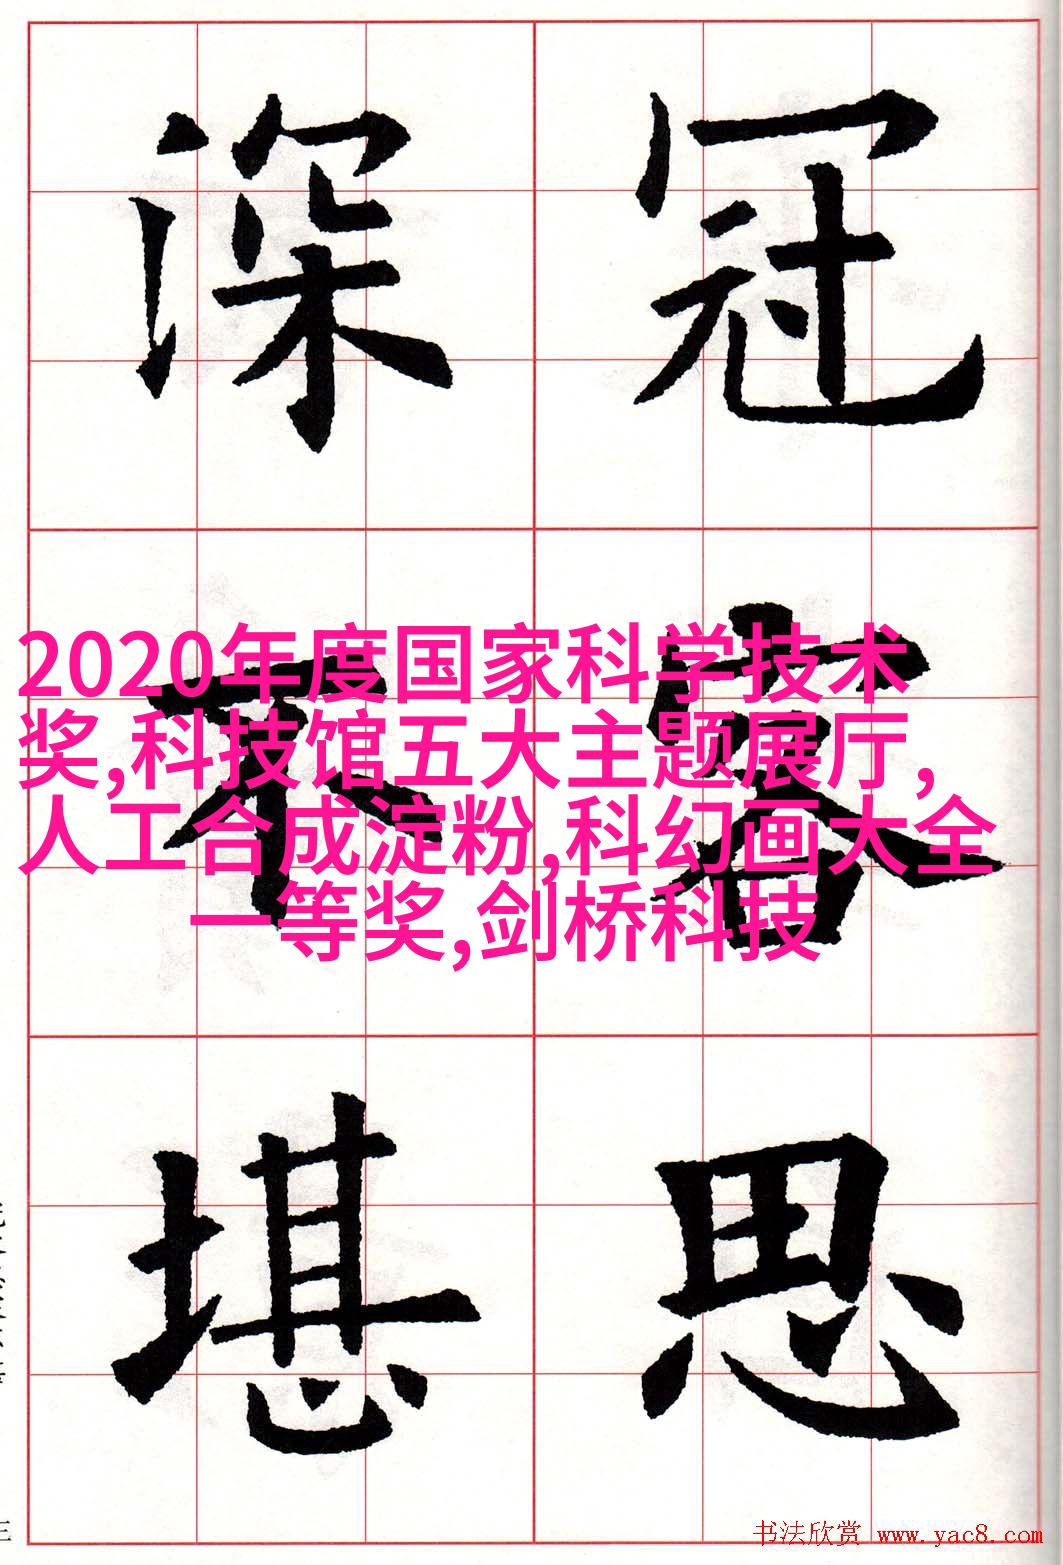 冠 深
容 不
思 堪
2020年度国家科学技术
奖,科技馆五大主题展厅,
人工合成淀粉,科幻画大全
一等奖,剑桥科技
书法欣赏 www.yac8.com